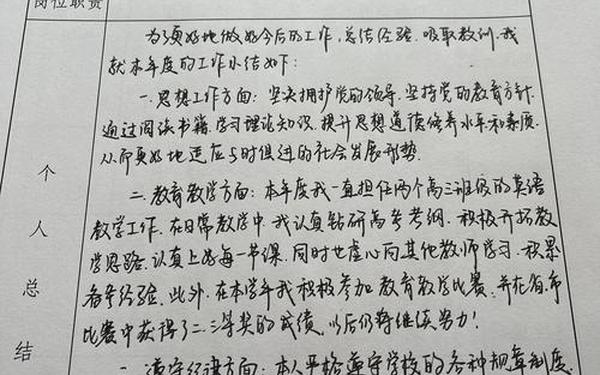 岗位职责
为了更好地做好今后的工作,总结经验、吸取教训,我
就本年度的工作小结如下:
一.思想工作方面:坚决拥护党的领导,坚持党的教育方针,
通过阅读书籍,学习理论知识,提升思想道德修养水平和素质,
从而更好地适应与时俱进的社会发展形势.
二.教育教学方面:本年度我一直担任两个高三班级的英语
教学工作.在日常教学中,我认真钻研高考考纲,积极开拓教
学思路,认真上好每一节课,同时也虚心向其他教师学习,积累
各章经验.此外,在本学年我积极参加教育教学比赛,并在省、市
比赛中获得了二、三等奖的成绩,以后仍将继续努力!
遵守纪律方面:本人严格遵守学校的各种规章制度,
个
人
总
结